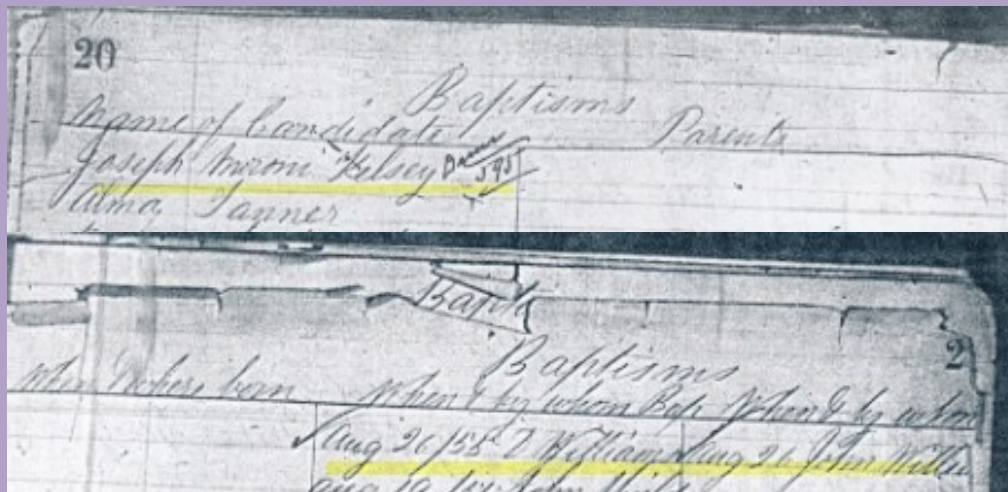 20
Baptisms
Name of Candidate Parents
Joseph Moroni Kelsey
Alma Tanner
Bapt
Baptisms 2
When & where born When & by whom Bap When & by whom
Aug 26/55 Williams Aug 26 John
aug 19 by John